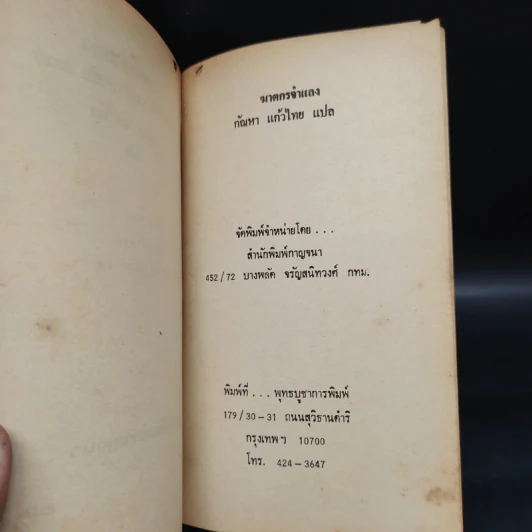 ฆาตกรจำแลง
กัณหา แก้วไทย แปล
จัดพิมพ์จำหน่ายโดย . . .
สำนักพิมพ์กาญจนา
452/72 บางพลัด จรัญสนิทวงศ์ กทม.
พิมพ์ที่ . . . พุทธบูชาการพิมพ์
179/30-31 ถนนสุวิธานดำริ
กรุงเทพฯ 10700
โทร. 424-3647